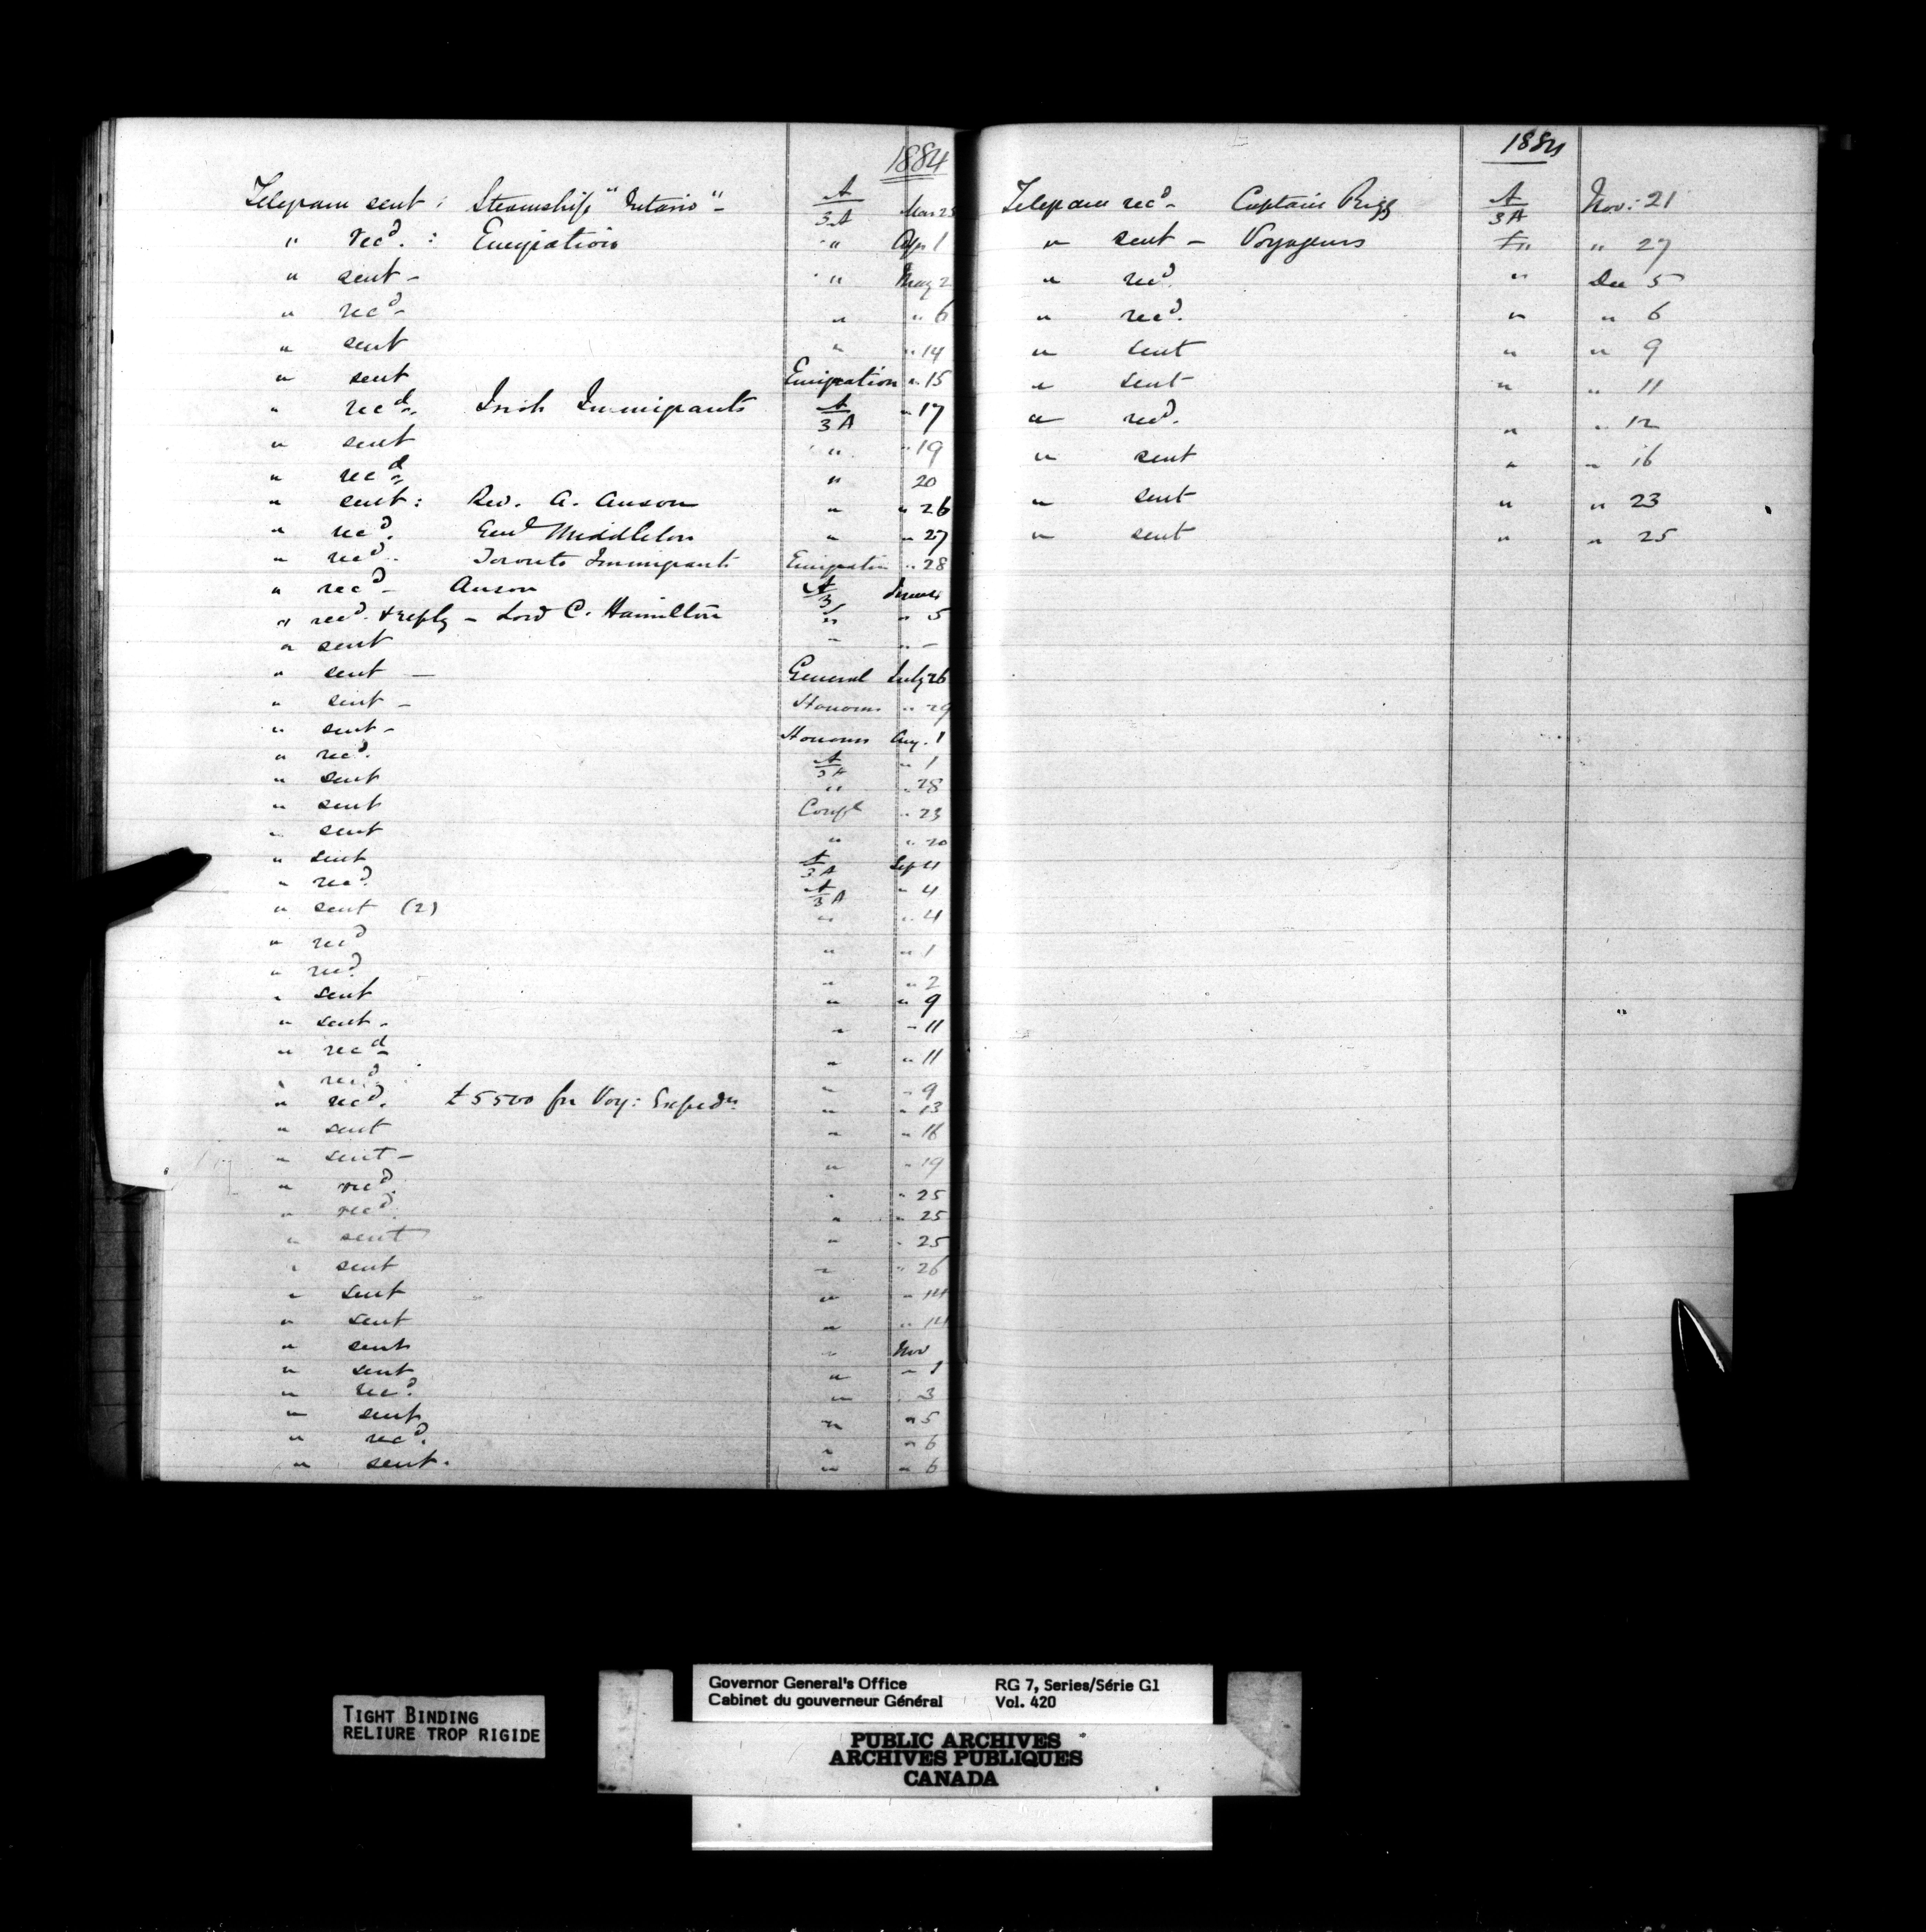 1884
Telegram sent : Steamship "Ontario" - A/3A Mar 25
" recd. : Emigration " Apr 1
" sent - " May 2
" recd - " " 6
" sent " " 14
" sent Emigration " 15
" recd. Irish Immigrants A/3A " 17
" sent " " 19
" recd " 20
" sent : Rev. A. Anson " " 26
" recd. Genl Middleton " " 27
" recd. Toronto Immigrants Emigration " 28
" recd - Anson A/3
" recd. & reply - Lord C. Hamilton " " 5
" sent " " -
" sent - General July 26
" sent - Honours " 29
" sent - Honours Aug. 1
" recd. A/3A " 1
" sent " " 28
" sent Confl " 23
" sent " " 20
" sent A/3A Sep 4
" recd. A/3A " 4
" sent (2) " " 4
" recd " " 1
" recd. " " 2
" sent " " 9
" sent - " " 11
" recd - " " 11
" recd. " " 9
" recd. £5500 for Voy: Expedn. " " 13
" sent " " 16
" sent - " " 19
" recd. " " 25
" recd. " " 25
" sent " " 25
" sent " " 26
" sent " " 14
" sent " " 14
" sent " Nov
" sent " " 1
" recd. " " 3
" sent " " 5
" recd. " " 6
" sent. " " 6
1884
Telegram recd - Captain Rigg A/3A Nov: 21
" sent - Voyageurs " " 27
" recd. " Dec 5
" recd. " " 6
" sent " " 9
" sent " " 11
" recd. " " 12
" sent " " 16
" sent " " 23
" sent " " 25
TIGHT BINDING
RELIURE TROP RIGIDE
Governor General's Office RG 7, Series/Série G1
Cabinet du gouverneur Général Vol. 420
PUBLIC ARCHIVES
ARCHIVES PUBLIQUES
CANADA